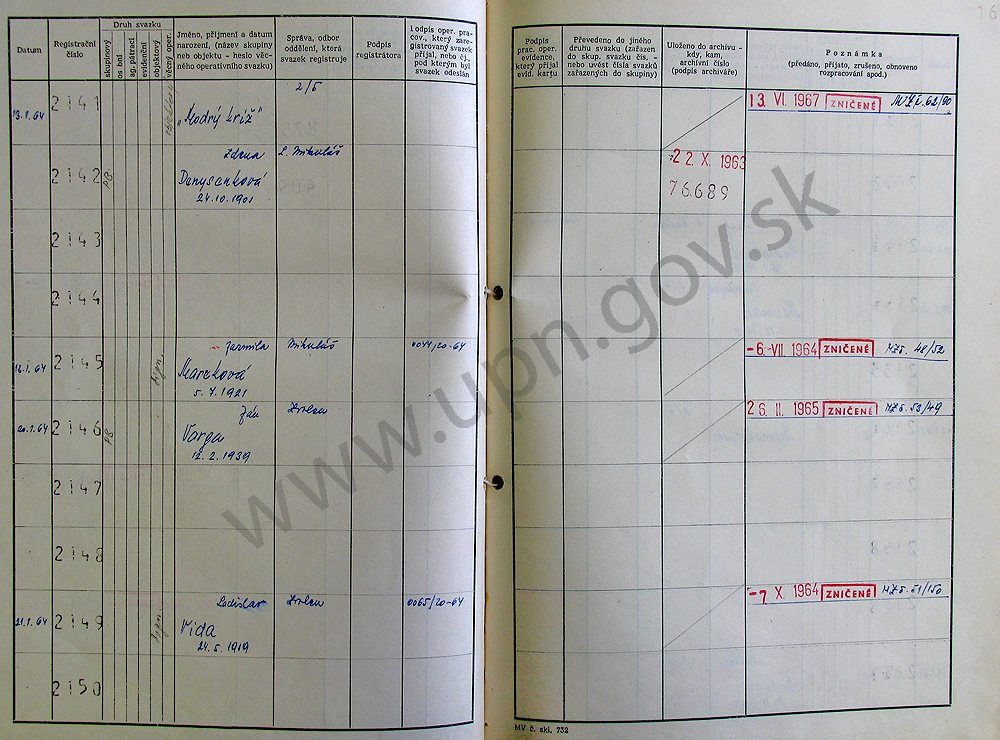 Datum
Registrační
číslo
Druh svazku
skupinový
osobní
ag. pátrací
evidenční
objektový
věcný oper.
Jméno, příjmení a datum
narození, (název skupiny
neb objektu - heslo věc-
ného operativního svazku)
Správa, odbor
oddělení, která
svazek registruje
Podpis
registrátora
Podpis oper. pra-
cov., který zare-
gistrovaný svazek
přijal, nebo čj.,
pod kterým byl
svazek odeslán
Podpis
prac. oper.
evidence,
který přijal
evid. kartu
Převedeno do jiného
druhu svazku (zařazen
do skup. svazku čís. -
nebo uvést čísla svazků
zařazených do skupiny)
Uloženo do archivu -
kdy, kam,
archivní číslo
(podpis archiváře)
Poznámka
(předáno, přijato, zrušeno, obnoveno
rozpracování apod.)
16
13.1.64 2141 „Modrý kríž" 2/5 13. VI. 1967 ZNIČENÉ 62/90
2142 PB Zdena L. Mikuláš 22. X. 1963
Denysenková 76689
24.10.1901
2143
2144
16.1.64 2145 Jarmila Mikuláš 0044/20-64 -6. VII. 1964 ZNIČENÉ MZč. 48/52
Mareková
5.7.1921
20.1.64 2146 PB Ján Zvolen 26. II. 1965 ZNIČENÉ MZč. 53/49
Varga
12.2.1939
2147
2148
21.1.64 2149 Ladislav Zvolen 0065/20-64 -7. X. 1964 ZNIČENÉ MZč. 51/150
Vida
24.5.1919
2150
MV č. skl. 732
www.upn.gov.sk